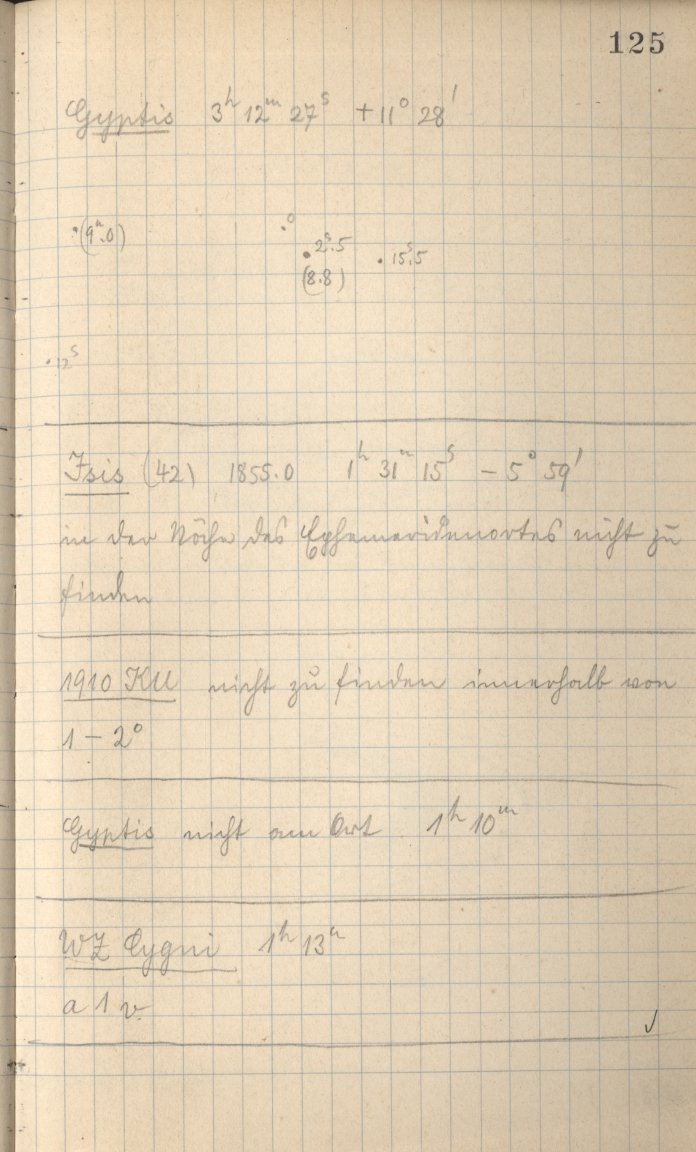 125
Gyptis 3ʰ 12ᵐ 27ˢ + 11° 28'
(9ᵐ.0)
0
2ˢ.5
15ˢ.5
(8.8)
12ˢ
Isis (42) 1855.0 1ʰ 31ᵐ 15ˢ – 5° 59'
in der Nähe des Ephemeridenortes nicht zu
finden
1910 KU nicht zu finden innerhalb von
1 – 2°
Gyptis nicht am Ort 1ʰ 10ᵐ
WZ Cygni 1ʰ 13ᵐ
a 1 v.